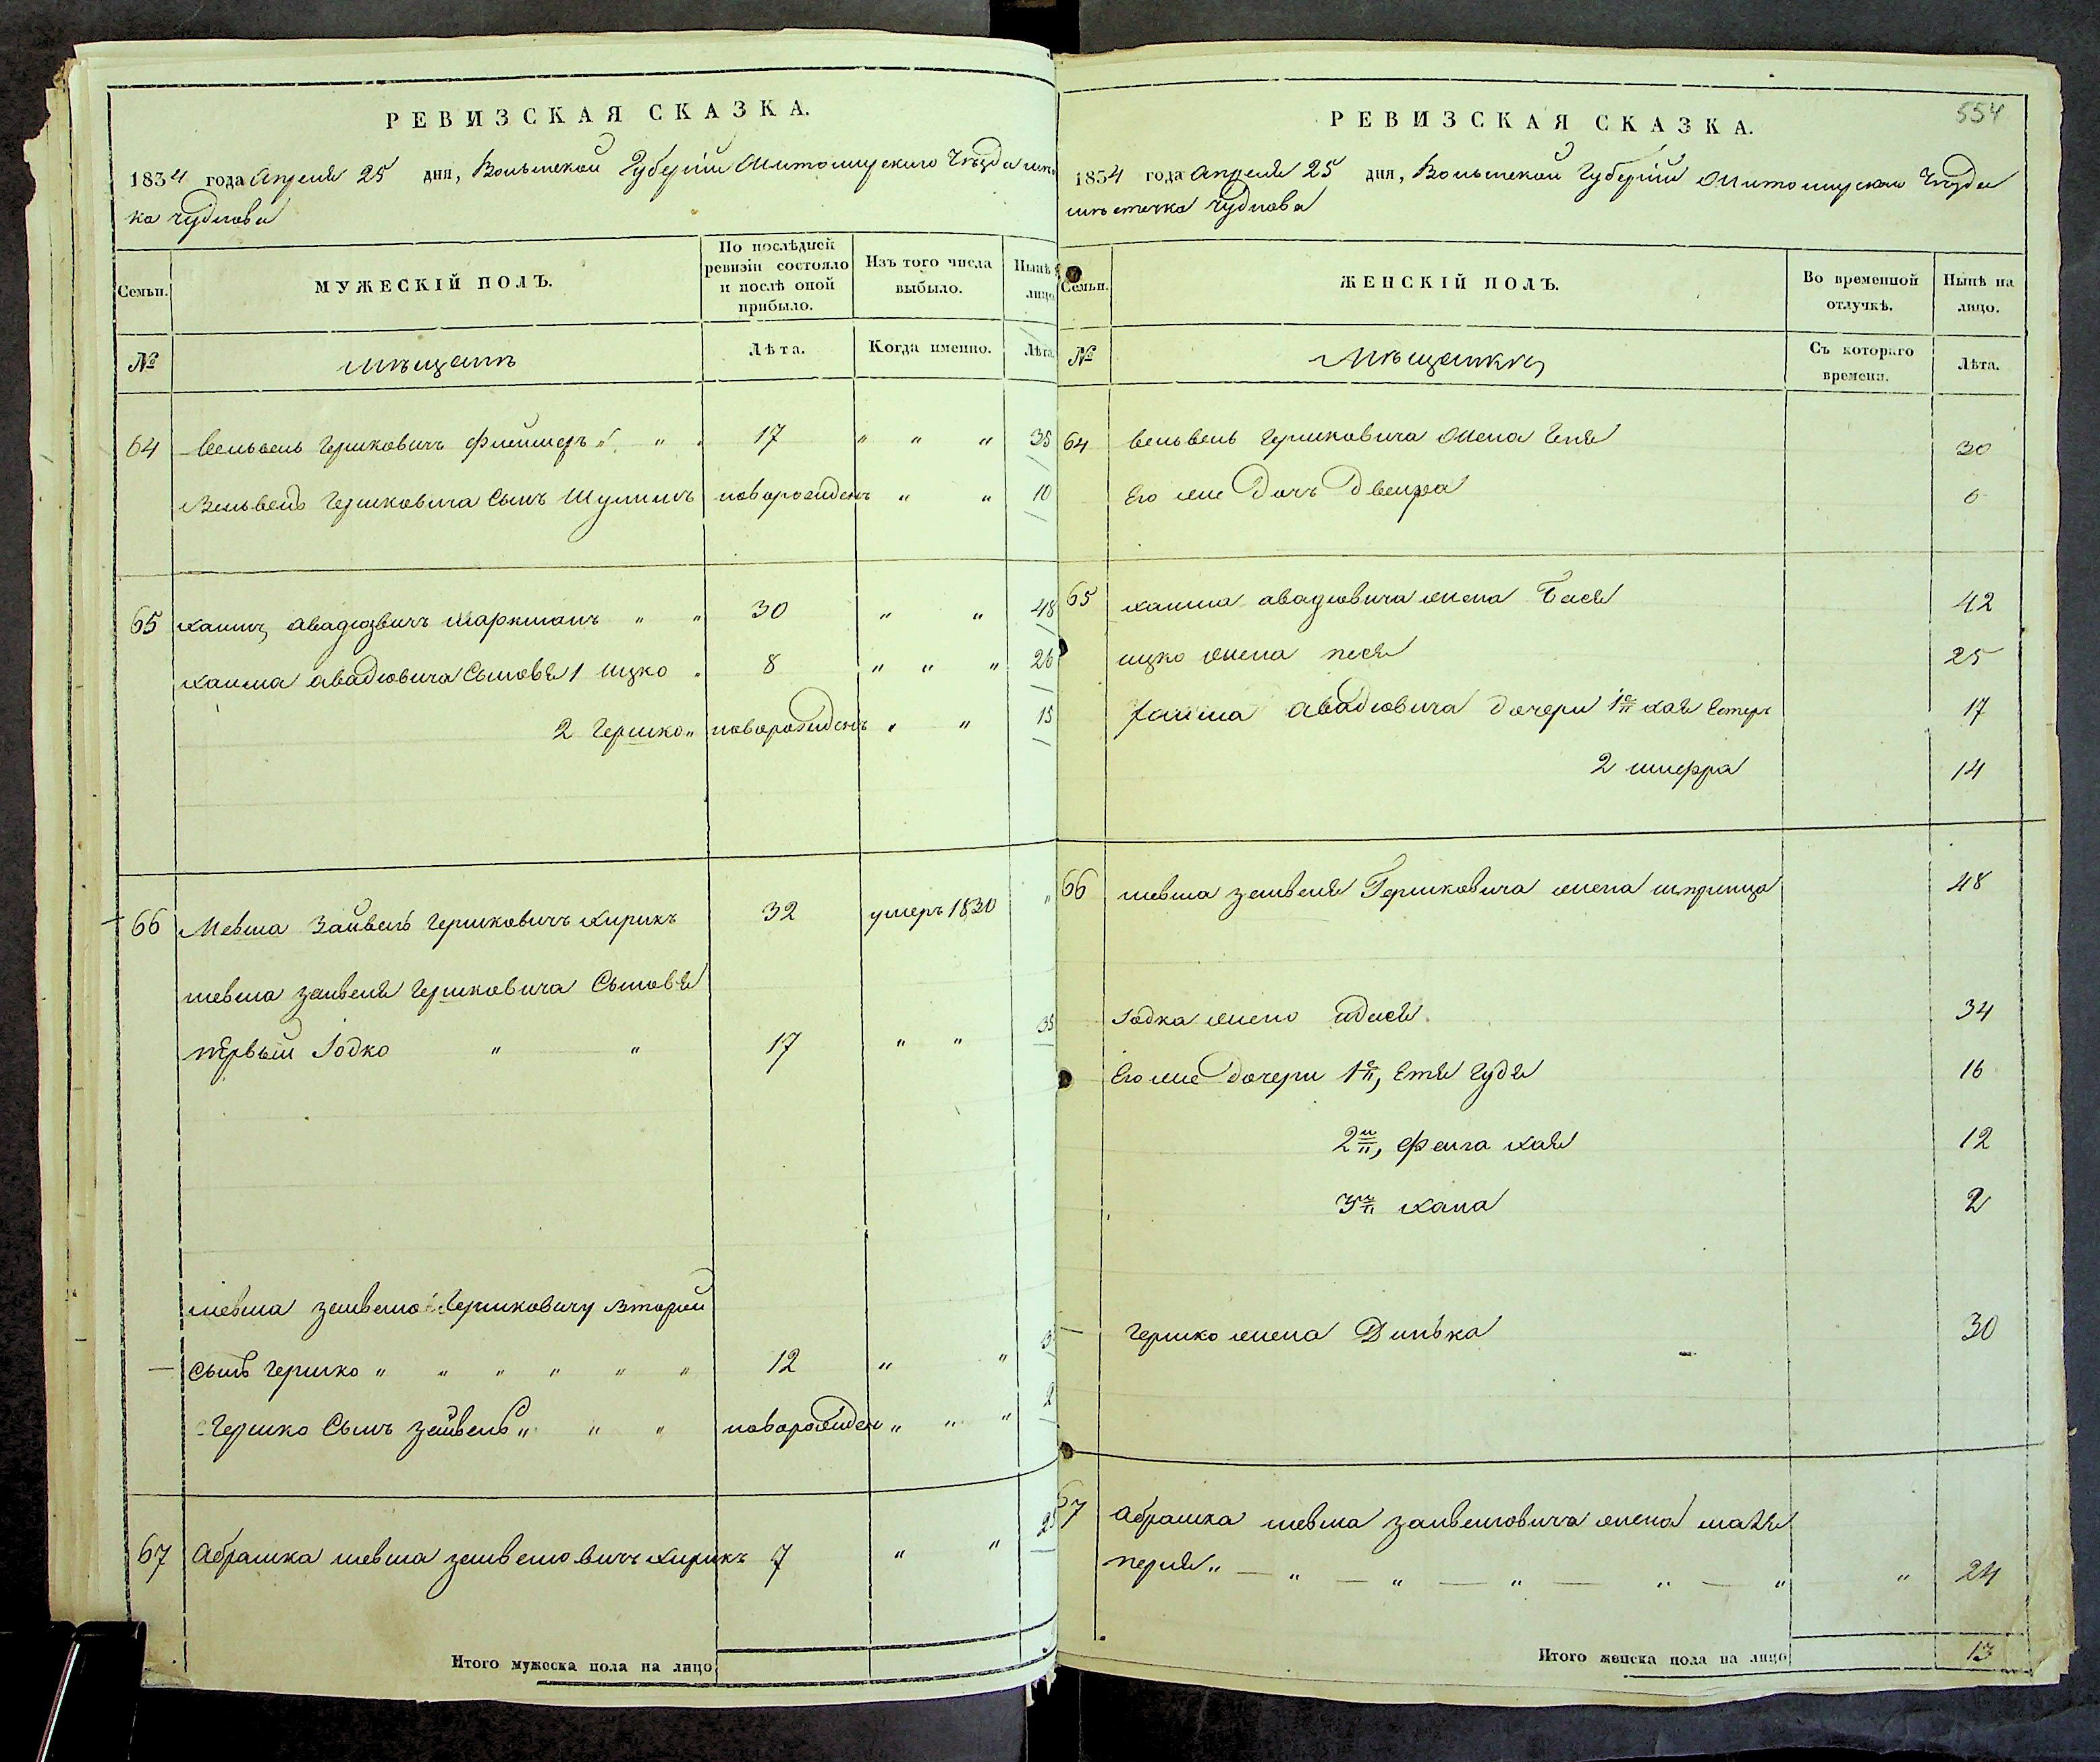 РЕВИЗСКАЯ СКАЗКА.
1834 года Апреля 25 дня, Волынской Губерніи Житомирскаго Уѣзда
ка Чуднова
Семьи.
МУЖЕСКІЙ ПОЛЪ.
По послѣдней ревизіи состояло и послѣ оной прибыло.
Изъ того числа выбыло.
Нынѣ
лицо
№
мѣщанъ
Лѣта.
Когда именно.
Лѣта.
64 Вельвель Гершковичъ " " 17 " " " 35
Вельвель Гершковича Сынъ Шулимъ новорожденъ " " 10
65 Хаимъ Авадіовичъ Маркманъ " " 30 " " 48
Хаима Авадіовича Сыновья 1 Ицко " 8 " " " 26
2 Гершко " новорожденъ " " 15
66 Мевша Зайвель Гершковичъ Кирикъ 32 умеръ 1830 "
мевша зайвеля Гершковича Сыновья
первый Іодко " " 17 " " 35
мевша зайвелю Гершковичу второй
— Сынъ Гершко " " " " " " 12 " "
Гершко Сынъ Зайвель " " " новорожден " " " 2
67 Абрашка мевша зайвелювичъ Кирикъ 7 " " 25
Итого мужеска пола на лицо
РЕВИЗСКАЯ СКАЗКА.
554
1834 года Апреля 25 дня, Волынской Губерніи Житомирскаго Уѣзда
мѣстечка Чуднова
Семьи.
ЖЕНСКІЙ ПОЛЪ.
Во временной отлучкѣ.
Нынѣ на лицо.
№
Мѣщанки
Съ котораго времени.
Лѣта.
64 Вельвель Гершковича Жена Геня 30
Его же Дочь Двейра 6
65 Хаима Авадіовича жена Бася 42
ицко жена песя 25
Хаима Авадіовича дочери 1я хая Естеръ 17
2 шифра 14
66 мевша зайвеля Гершковича жена шпринца 48
Іодка жена адася 34
Его же дочери 1я, Етя Гудя 16
2я, Фейга хая 12
3я хана 2
— Гершко жена Динька 30
67 Абрашка мевша зайвелювича жена маля
перля " — " — " — " — " — " " 24
Итого женска пола на лицо 13